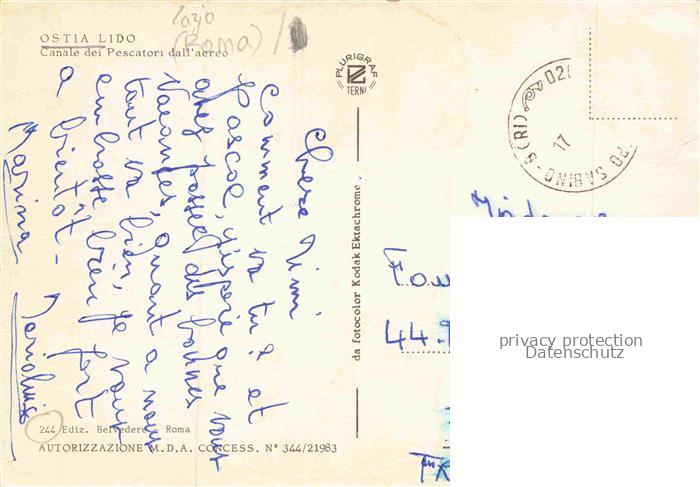 Lazio
(Roma)
OSTIA LIDO
Canale dei Pescatori dall'aereo
PLURIGRAF
TERNI
Chère Mimi
Comment va tu? et
Pascal, j'espère que vous
avez passer des bonnes
Vacances, quant a nous
tout va bien, je vous
embrasse bien fort
a bientôt -
Marina
da fotocolor Kodak Ektachrome
020
17
PO SABINO - B (RI)
44.
privacy protection
Datenschutz
244 Ediz. Belvedere - Roma
AUTORIZZAZIONE M.D.A. CONCESS. N° 344/21983